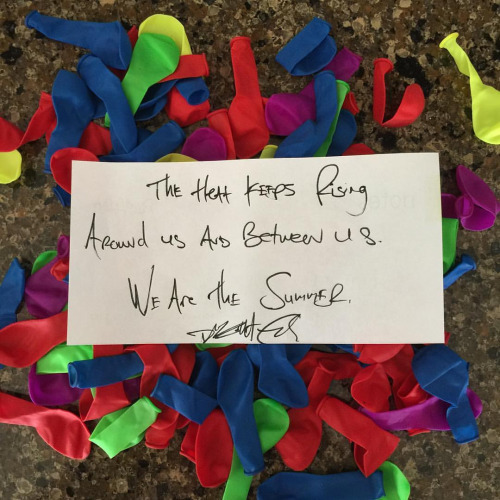 The Heat Keeps Rising
Around us And Between us.
We Are the Summer.